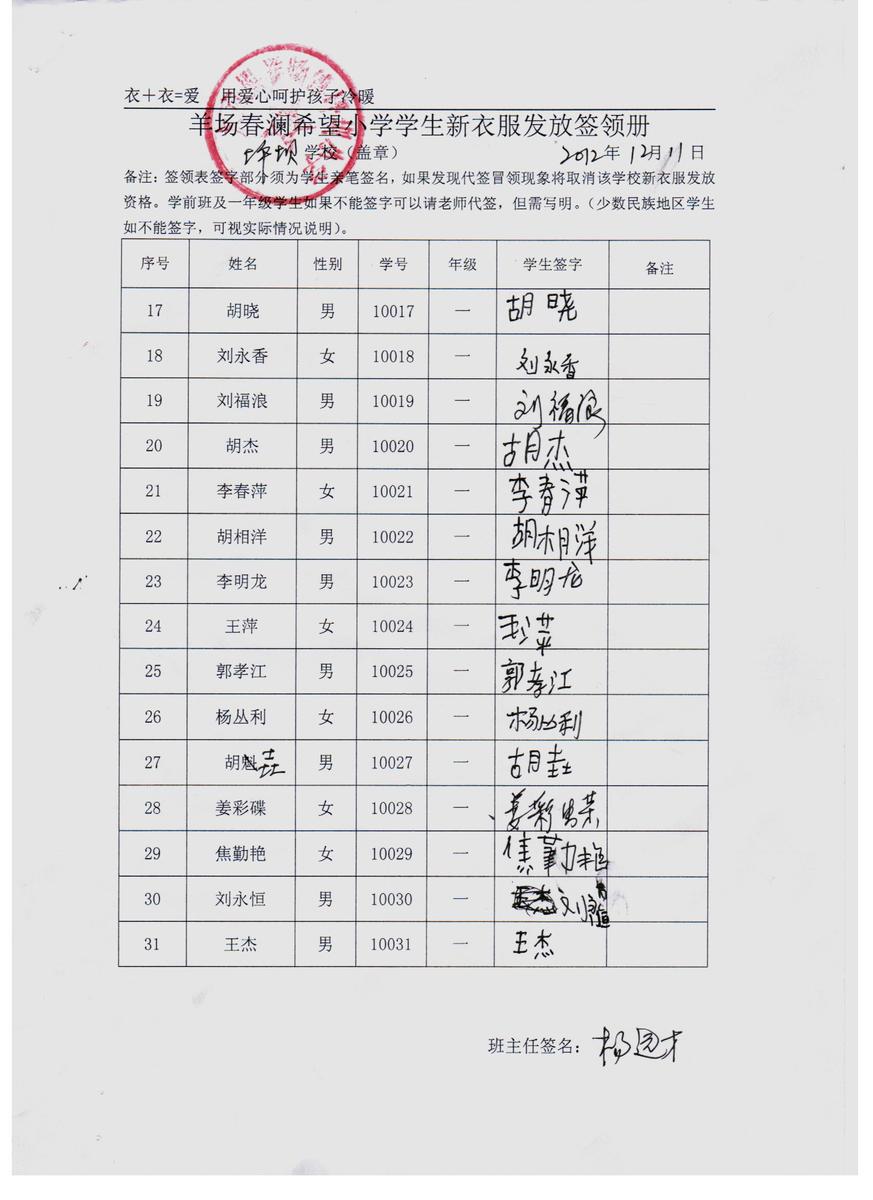 衣＋衣=爱 用爱心呵护孩子冷暖
羊场春澜希望小学学生新衣服发放签领册
坪坝 学校（盖章） 2012年12月11日
备注：签领表签字部分须为学生亲笔签名，如果发现代签冒领现象将取消该学校新衣服发放
资格。学前班及一年级学生如果不能签字可以请老师代签，但需写明。（少数民族地区学生
如不能签字，可视实际情况说明）。
序号 姓名 性别 学号 年级 学生签字 备注
17 胡晓 男 10017 一 胡晓
18 刘永香 女 10018 一 刘永香
19 刘福浪 男 10019 一 刘福浪
20 胡杰 男 10020 一 胡杰
21 李春萍 女 10021 一 李春萍
22 胡相洋 男 10022 一 胡相洋
23 李明龙 男 10023 一 李明龙
24 王萍 女 10024 一 王萍
25 郭孝江 男 10025 一 郭孝江
26 杨丛利 女 10026 一 杨丛利
27 胡魁垚 男 10027 一 胡垚
28 姜彩碟 女 10028 一 姜彩
29 焦勤艳 女 10029 一 焦勤艳
30 刘永恒 男 10030 一 刘永恒
31 王杰 男 10031 一 王杰
班主任签名：杨